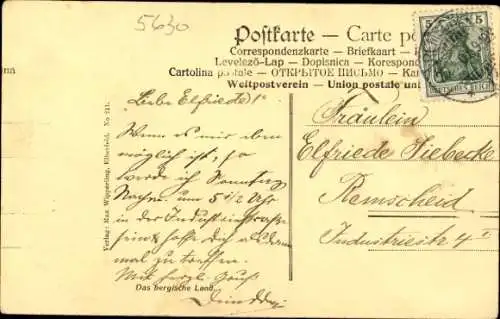 5630
Postkarte — Carte po
Correspondenzkarte — Briefkaart —
Levelező-Lap — Dopisnica — Korespond
Cartolina postale — ОТКРЫТОЕ ПИСЬМО — Ka
Weltpostverein — Union postale uni
5 5
DEUTSCHES REICH
Liebe Elfriede!
Wenn es mir eben
möglich ist, so
werde ich Sonntag
Nachm. um 5 1/2 Uhr
in der Industriestraße
sein & hoffe Dich
mal zu treffen.
Mit herzl. Gruß
Fräulein
Elfriede Siebecke
Remscheid
Industriestr 4
Verlag: Max Wipperling, Elberfeld. No. 211.
Das bergische Land